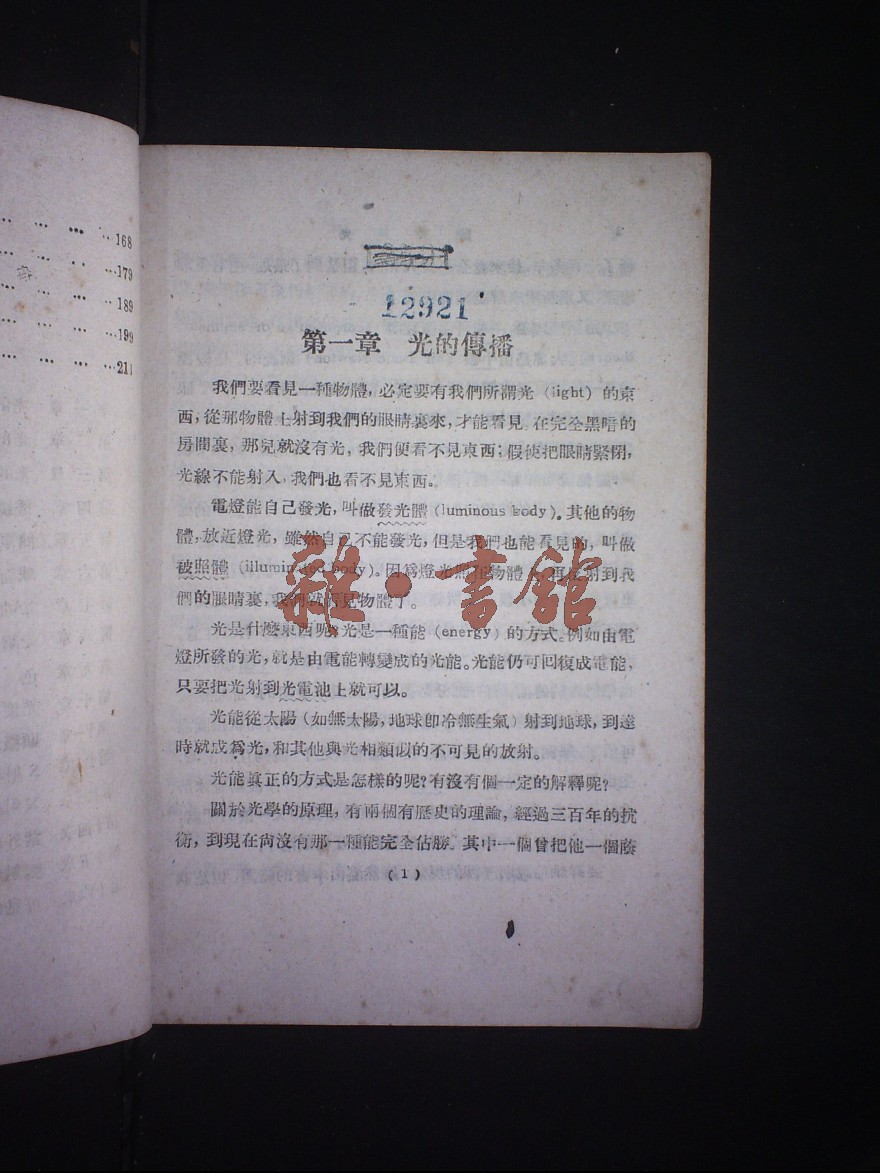 168
179
189
199
211
12921
第一章 光的傳播
我們要看見一種物體，必定要有我們所謂光 (light) 的東
西，從那物體上射到我們的眼睛裏來，才能看見 在完全黑暗的
房間裏，那兒就沒有光，我們便看不見東西；假使把眼睛緊閉，
光線不能射入，我們也看不見東西。
電燈能自己發光，叫做發光體 (luminous body)。其他的物
體，放近燈光，雖然自己不能發光，但是我們也能看見的，叫做
被照體 (illuminated body)。因爲燈光照在物體上，再反射到我
們的眼睛裏，我們就看見物體了。
光是什麼東西呢？光是一種能 (energy) 的方式。例如由電
燈所發的光，就是由電能轉變成的光能。光能仍可回復成電能，
只要把光射到光電池上就可以。
光能從太陽 (如無太陽，地球卽冷無生氣) 射到地球，到達
時就成爲光，和其他與光相類似的不可見的放射。
光能眞正的方式是怎樣的呢？有沒有個一定的解釋呢？
關於光學的原理，有兩個有歷史的理論，經過三百年的抗
衡，到現在尙沒有那一種能完全佔勝。其中一個曾把他一個廢
(1)
雜·書館